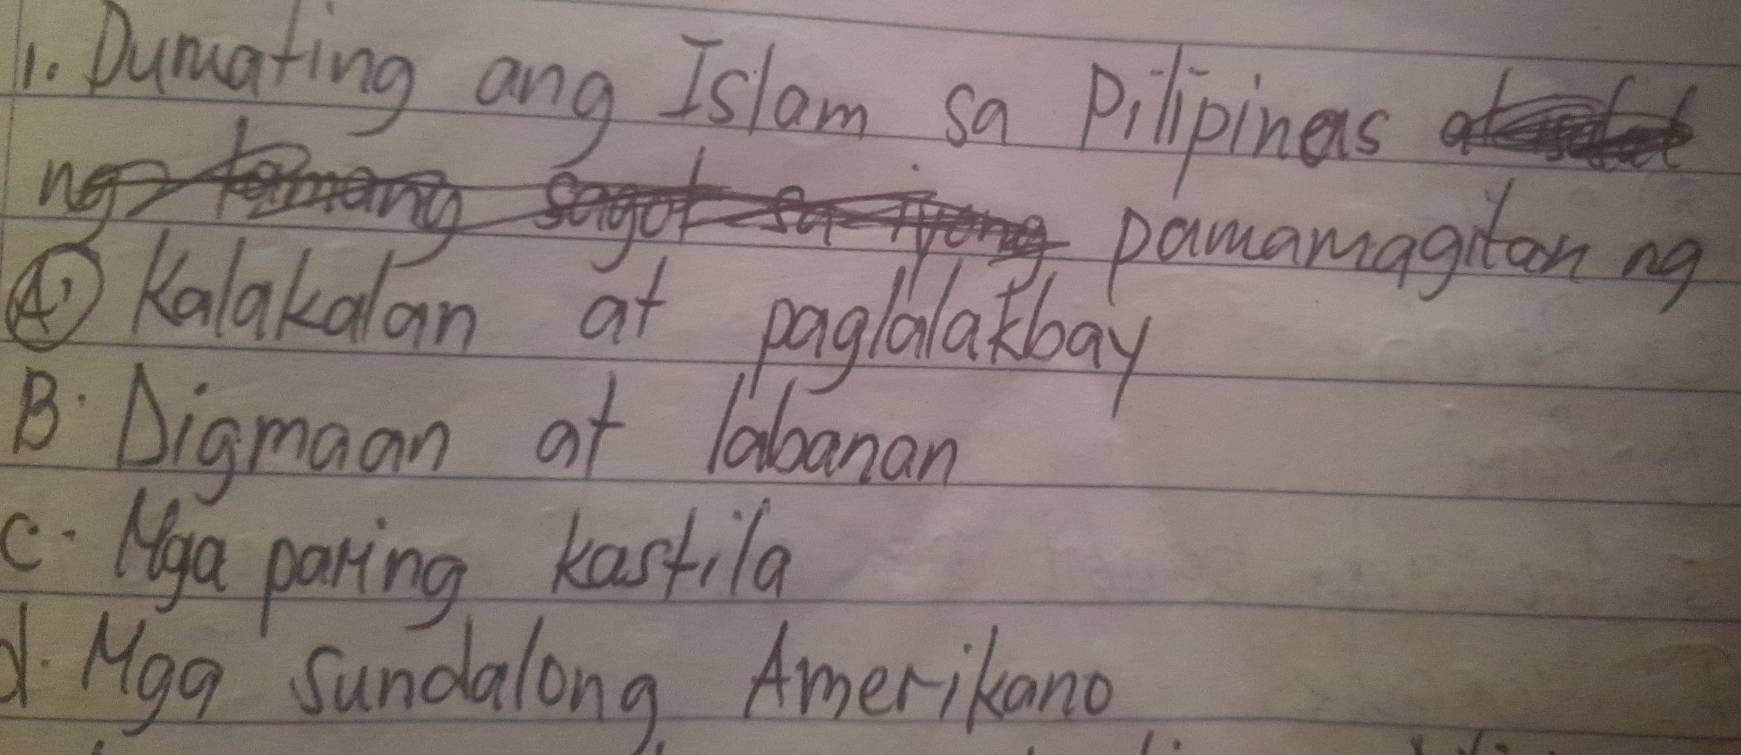 1. Dumating ang Islam sa Pilipinas
ng tamang sagot sa iyong pamamagitan ng
A. Kalakalan at paglalakbay
B. Digmaan at labanan
C. Mga paring kastila
d. Mga sundalong Amerikano